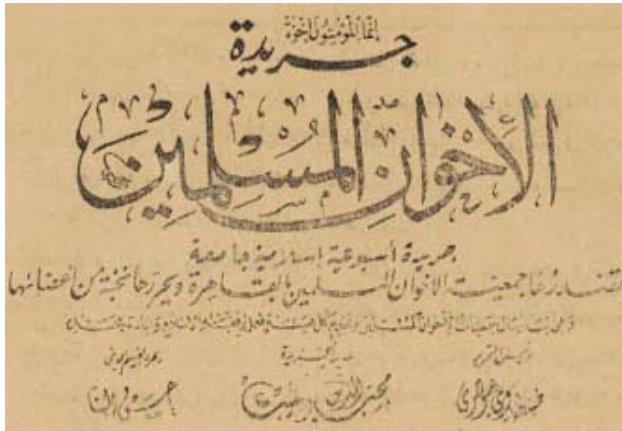 إنما المؤمنون إخوة
جريدة
الإخوان المسلمين
جريدة أسبوعية إسلامية جامعة
تصدرها جمعية الاخوان المسلمين بالقاهرة ويحررها نخبة من أعضائها
رئيس التحرير مدير الجريدة
طنطاوي جوهري محب الدين الخطيب حسن البنا